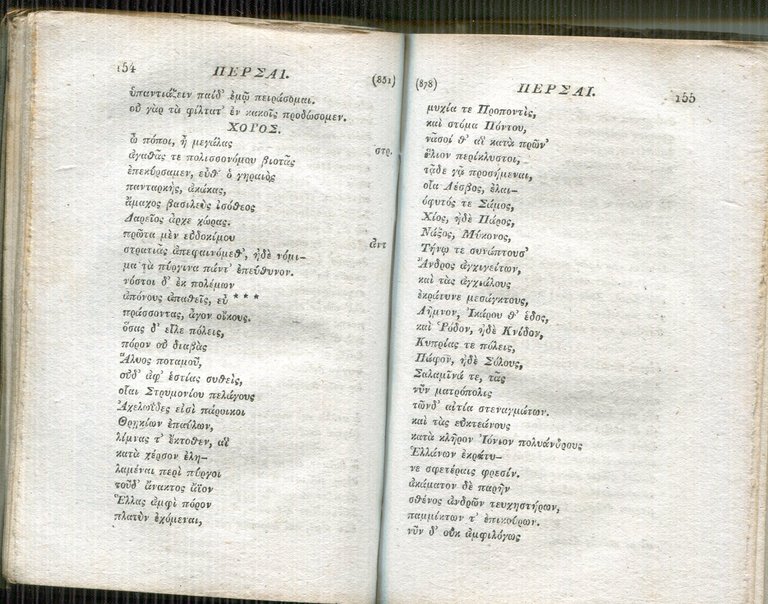 154 ΠΕΡΣΑΙ. (851)
ὑπαντιάζειν παῖδ' ἐμῷ πειράσομαι.
οὐ γὰρ τὰ φίλτατ' ἐν κακοῖς προδώσομεν.
ΧΟΡΟΣ.
ὦ πόποι, ἦ μεγάλας στρ.
ἀγαθᾶς τε πολισσονόμου βιοτᾶς
ἐπεκύρσαμεν, εὖθ' ὁ γηραιὸς
πανταρκὴς, ἀκάκας,
ἄμαχος βασιλεὺς ἰσόθεος
Δαρεῖος ἆρχε χώρας.
πρῶτα μὲν εὐδοκίμου ἀντ
στρατιᾶς ἀπεφαινόμεθ', ἠδὲ νόμι-
μα τὰ πύργινα πάντ' ἐπεύθυνον.
νόστοι δ' ἐκ πολέμων
ἀπόνους ἀπαθεῖς, εὖ ***
πράσσοντας, ἆγον οἴκους.
ὅσας δ' εἷλε πόλεις,
πόρον οὐ διαβὰς
Ἅλυος ποταμοῦ,
οὐδ' ἀφ' ἑστίας συθεὶς,
οἷαι Στρυμονίου πελάγους
Ἀχελωΐδες εἰσὶ πάροικοι
Θρηκίων ἐπαύλων,
λίμνας τ' ἔκτοθεν, αἳ
κατὰ χέρσον ἐλη-
λαμέναι περὶ πύργοι
τοῦδ' ἄνακτος ἄϊον
Ἕλλας ἀμφὶ πόρον
πλατὺν ἐχόμεναι,
(878) ΠΕΡΣΑΙ. 155
μυχία τε Προποντὶς,
καὶ στόμα Πόντου,
νᾶσοί θ' αἳ κατὰ πρῶν'
ἅλιον περίκλυστοι,
τᾷδε γᾷ προσήμεναι,
οἵα Λέσβος, ἐλαι-
όφυτός τε Σάμος,
Χίος, ἠδὲ Πάρος,
Νάξος, Μύκονος,
Τήνῳ τε συνάπτουσ'
Ἄνδρος ἀγχιγείτων,
καὶ τὰς ἀγχιάλους
ἐκράτυνε μεσάγκτους,
Λῆμνον, Ἰκάρου θ' ἕδος,
καὶ Ῥόδον, ἠδὲ Κνίδον,
Κυπρίας τε πόλεις,
Πάφον, ἠδὲ Σόλους,
Σαλαμῖνά τε, τᾶς
νῦν ματρόπολις
τῶνδ' αἰτία στεναγμάτων.
καὶ τὰς εὐκτεάνους
κατὰ κλῆρον Ἰόνιον πολυάνδρους
Ἑλλάνων ἐκράτυ-
νε σφετέραις φρεσίν.
ἀκάματον δὲ παρῆν
σθένος ἀνδρῶν τευχηστήρων,
παμμίκτων τ' ἐπικούρων.
νῦν δ' οὐκ ἀμφιλόγως